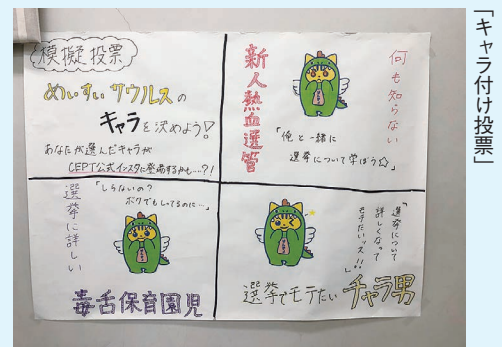 模擬投票
めいすいサウルスの
キャラを決めよう!?
あなたが選んだキャラが
CEPT公式インスタに登場するかも…?!
何も知らない
新人熱血選管
「俺と一緒に
選挙について学ぼう☆」
選挙に詳しい
「しらないの?
ボクでもしってるのに…」
毒舌保育園児
「選挙について
詳しくなって
モテたいッス!!」
選挙でモテたい
チャラ男
「キャラ付け投票」